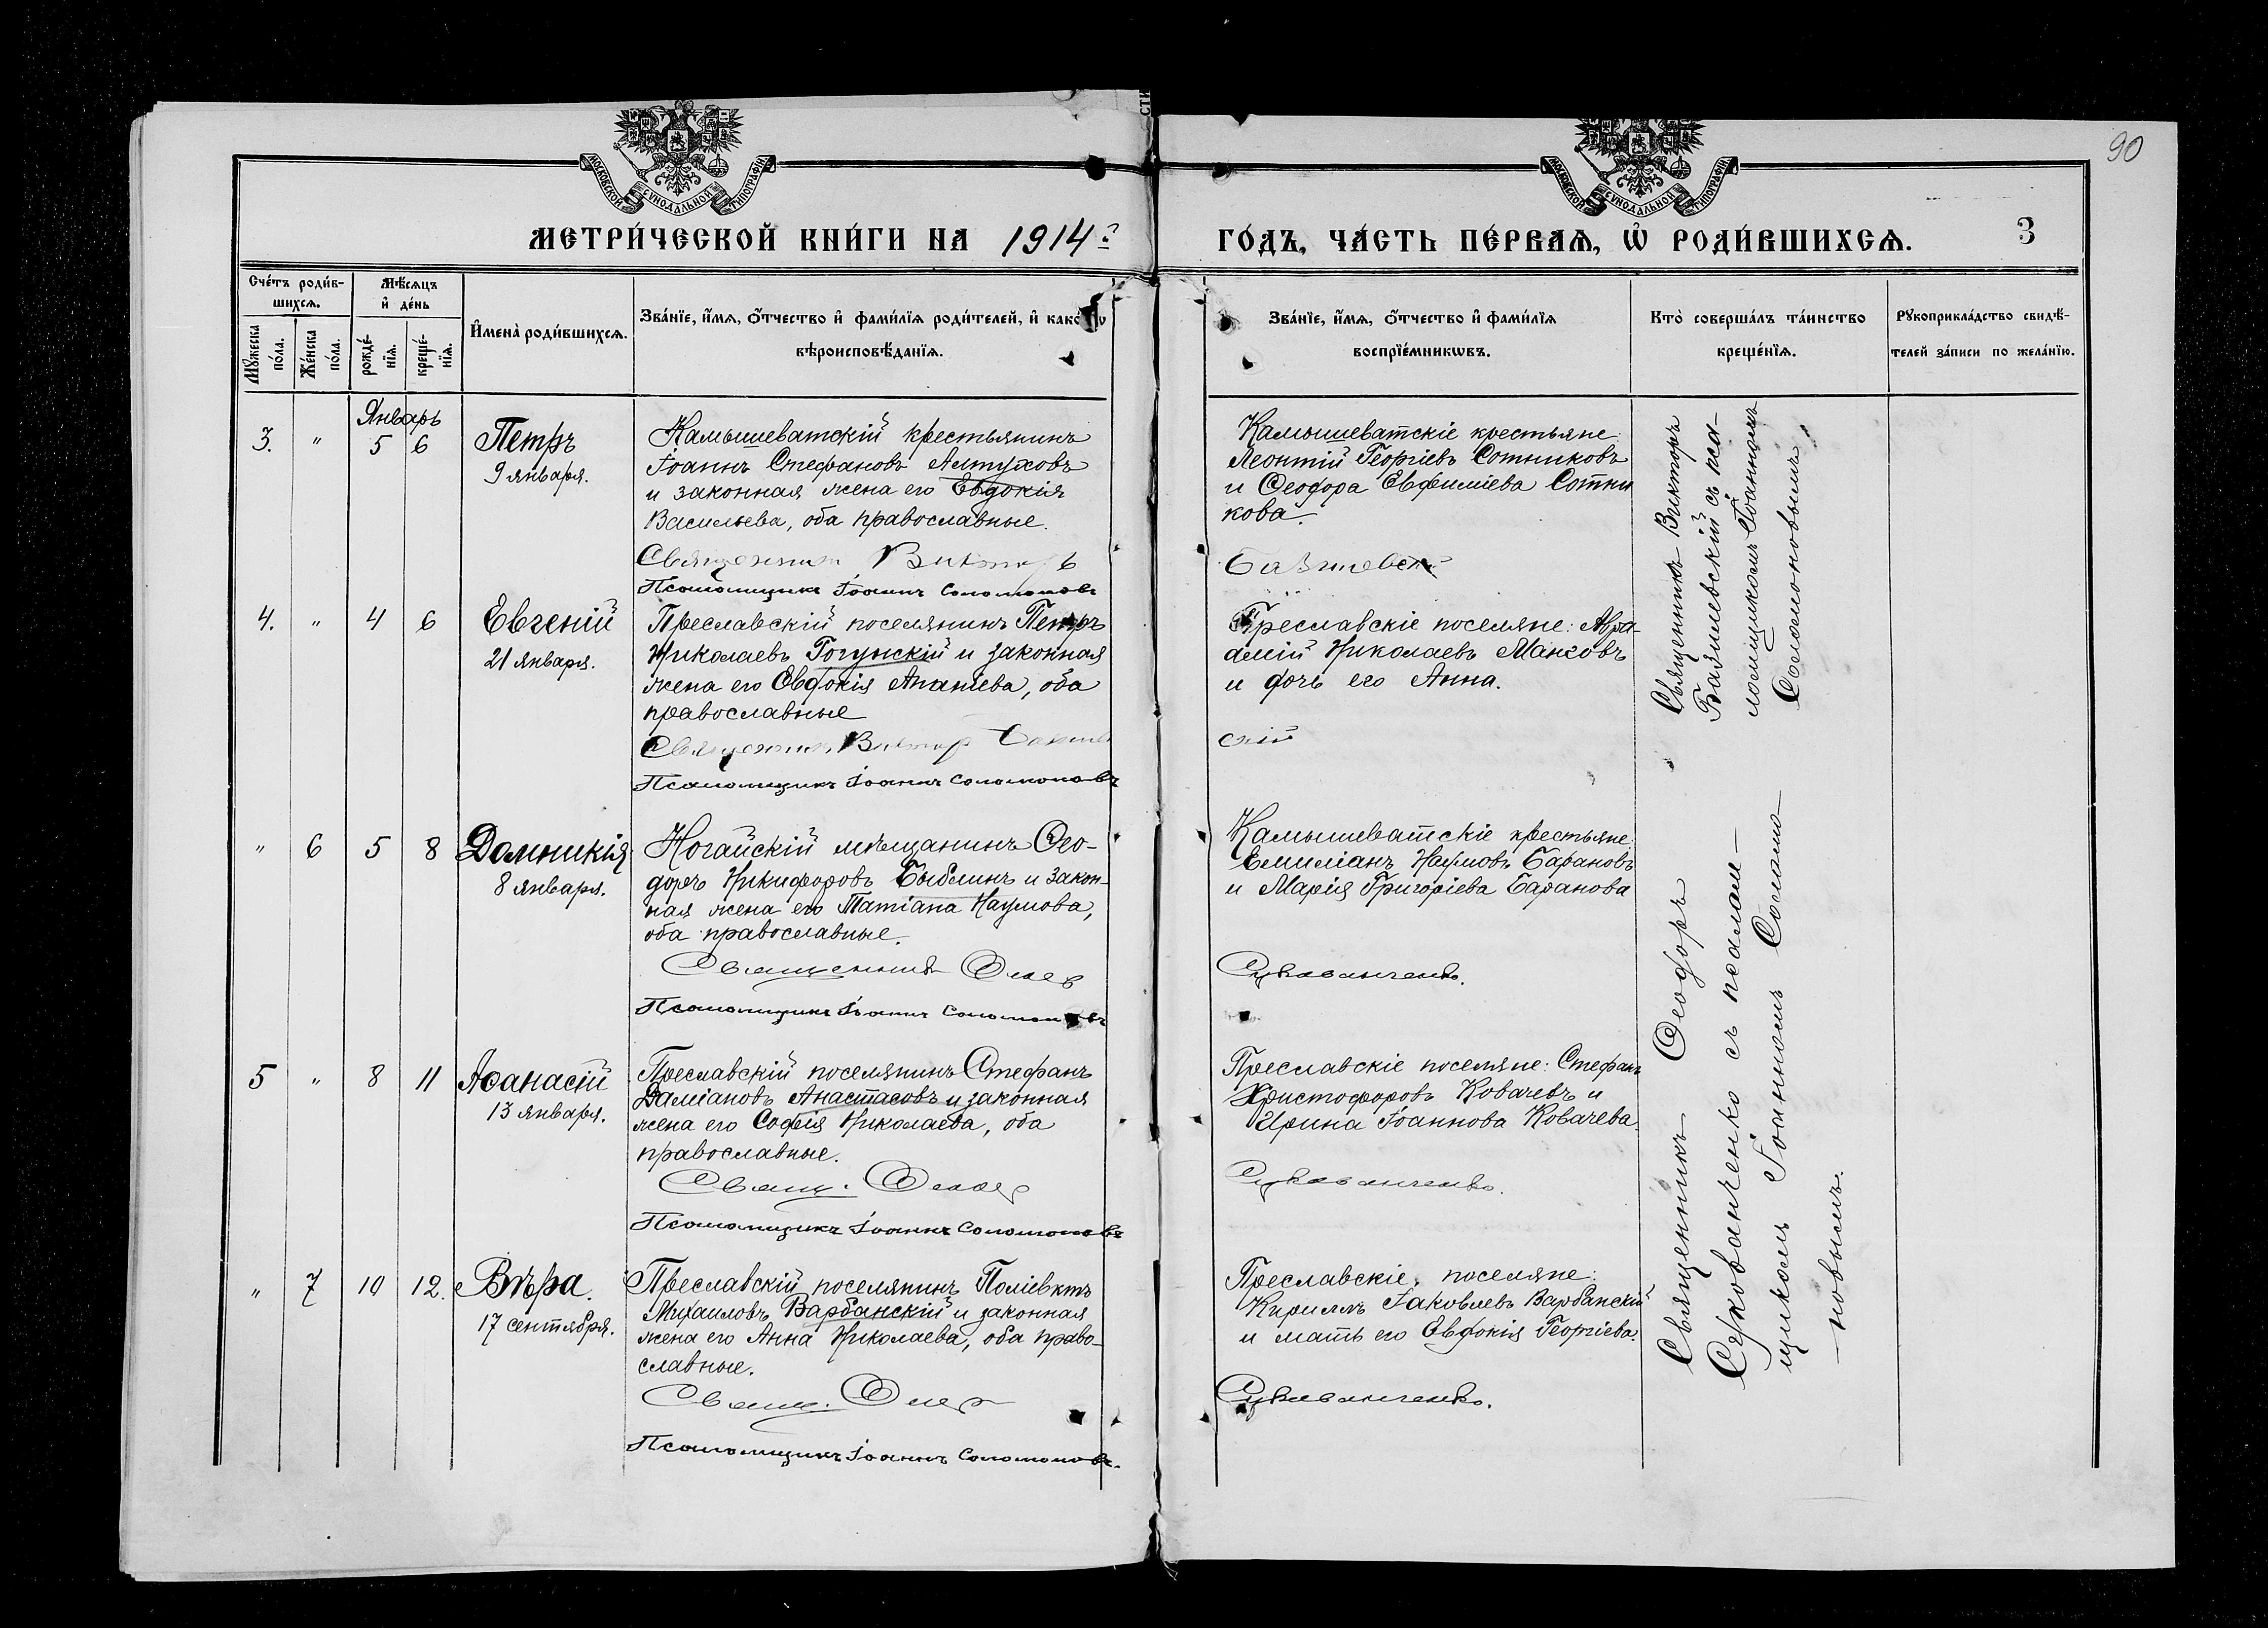 90
МОСКОВСКОЙ СУНОДАЛЬНОЙ ТИПОГРАФІИ
МОСКОВСКОЙ СУНОДАЛЬНОЙ ТИПОГРАФІИ
МЕТРИ́ЧЕСКОЙ КНИ́ГИ НА 1914 г.
ГО́ДЪ, ЧА́СТЬ ПЕ́РВАѦ, Ѡ҆ РОДИ́ВШИХСѦ.
3
Сче́тъ роди́в-
шихсѧ.
Мꙋ́жеска по́ла.
Же́нска по́ла.
Мѣ́сяцъ
и҆ де́нь
рожде́-
нїѧ.
креще́-
нїѧ.
И҆мена̀ роди́вшихсѧ.
Зва́нїе, и҆́мѧ, ѻ҆́тчество и҆ фами́лїѧ роди́телей, и҆ како́
вѣроисповѣ́данїѧ.
Зва́нїе, и҆́мѧ, ѻ҆́тчество и҆ фами́лїѧ
воспрїе́мникѡвъ.
Кто̀ соверша́лъ та́инство
креще́нїѧ.
Рꙋкоприкла́дство свидѣ́-
телей за́писи по жела́нїю.
Январь
3. " 5 6
Петръ
9 января.
Камышеватскій крестьянинъ
Іоаннъ Стефановъ Алтуховъ
и законная жена его Евдокія
Васильева, оба православные.
Священникъ Викторъ
Псаломщикъ Іоаннъ Соломоновъ
Камышеватскіе крестьяне:
Леонтій Георгіевъ Сотниковъ
и Ѳеодора Евфиміева Сотни
кова.
Базилевскій
Священникъ Викторъ
Базилевскій съ пса-
ломщикомъ Іоанномъ
Соломоновымъ.
4. " 4 6
Евгеній
21 января.
Преславскій поселянинъ Петръ
Николаевъ Гогунскій и законная
жена его Евдокія Ананіева, оба
православные
Священникъ Викторъ Базилев
Псаломщикъ Іоаннъ Соломоновъ
Преславскіе поселяне: Авра-
амій Николаевъ Манговъ
и дочь его Анна.
скій
" 6 5 8
Домникія
8 января.
Ногайскій мѣщанинъ Ѳео-
доръ Никифоровъ Быблинъ и закон-
ная жена его Татіана Наумова,
оба православные.
Священникъ Ѳеод
Псаломщикъ Іоаннъ Соломоновъ
Камышеватскіе крестьяне:
Емиліанъ Наумовъ Барановъ
и Марія Григоріева Баранова
Сукованченко.
Священникъ Ѳеодоръ
Сукованченко съ псалом-
щикомъ Іоанномъ Соломо-
-новымъ.
5 " 8 11
Аѳанасій
13 января.
Преславскій поселянинъ Стефанъ
Даміановъ Анастасовъ и законная
жена его Софія Николаева, оба
православные.
Свящ. Ѳеодор
Псаломщикъ Іоаннъ Соломоновъ
Преславскіе поселяне: Стефанъ
Христофоровъ Ковачевъ и
Ирина Іоаннова Ковачева.
Сукованченко.
" 7 10 12.
Вѣра.
17 сентября.
Преславскій поселянинъ Поліевктъ
Михаиловъ Варбанскій и законная
жена его Анна Николаева, оба право-
славные.
Свящ. Ѳеодор
Псаломщикъ Іоаннъ Соломоновъ.
Преславскіе поселяне:
Кириллъ Іаковлевъ Варбанскій
и мать его Евдокія Георгіева.
Сукованченко.